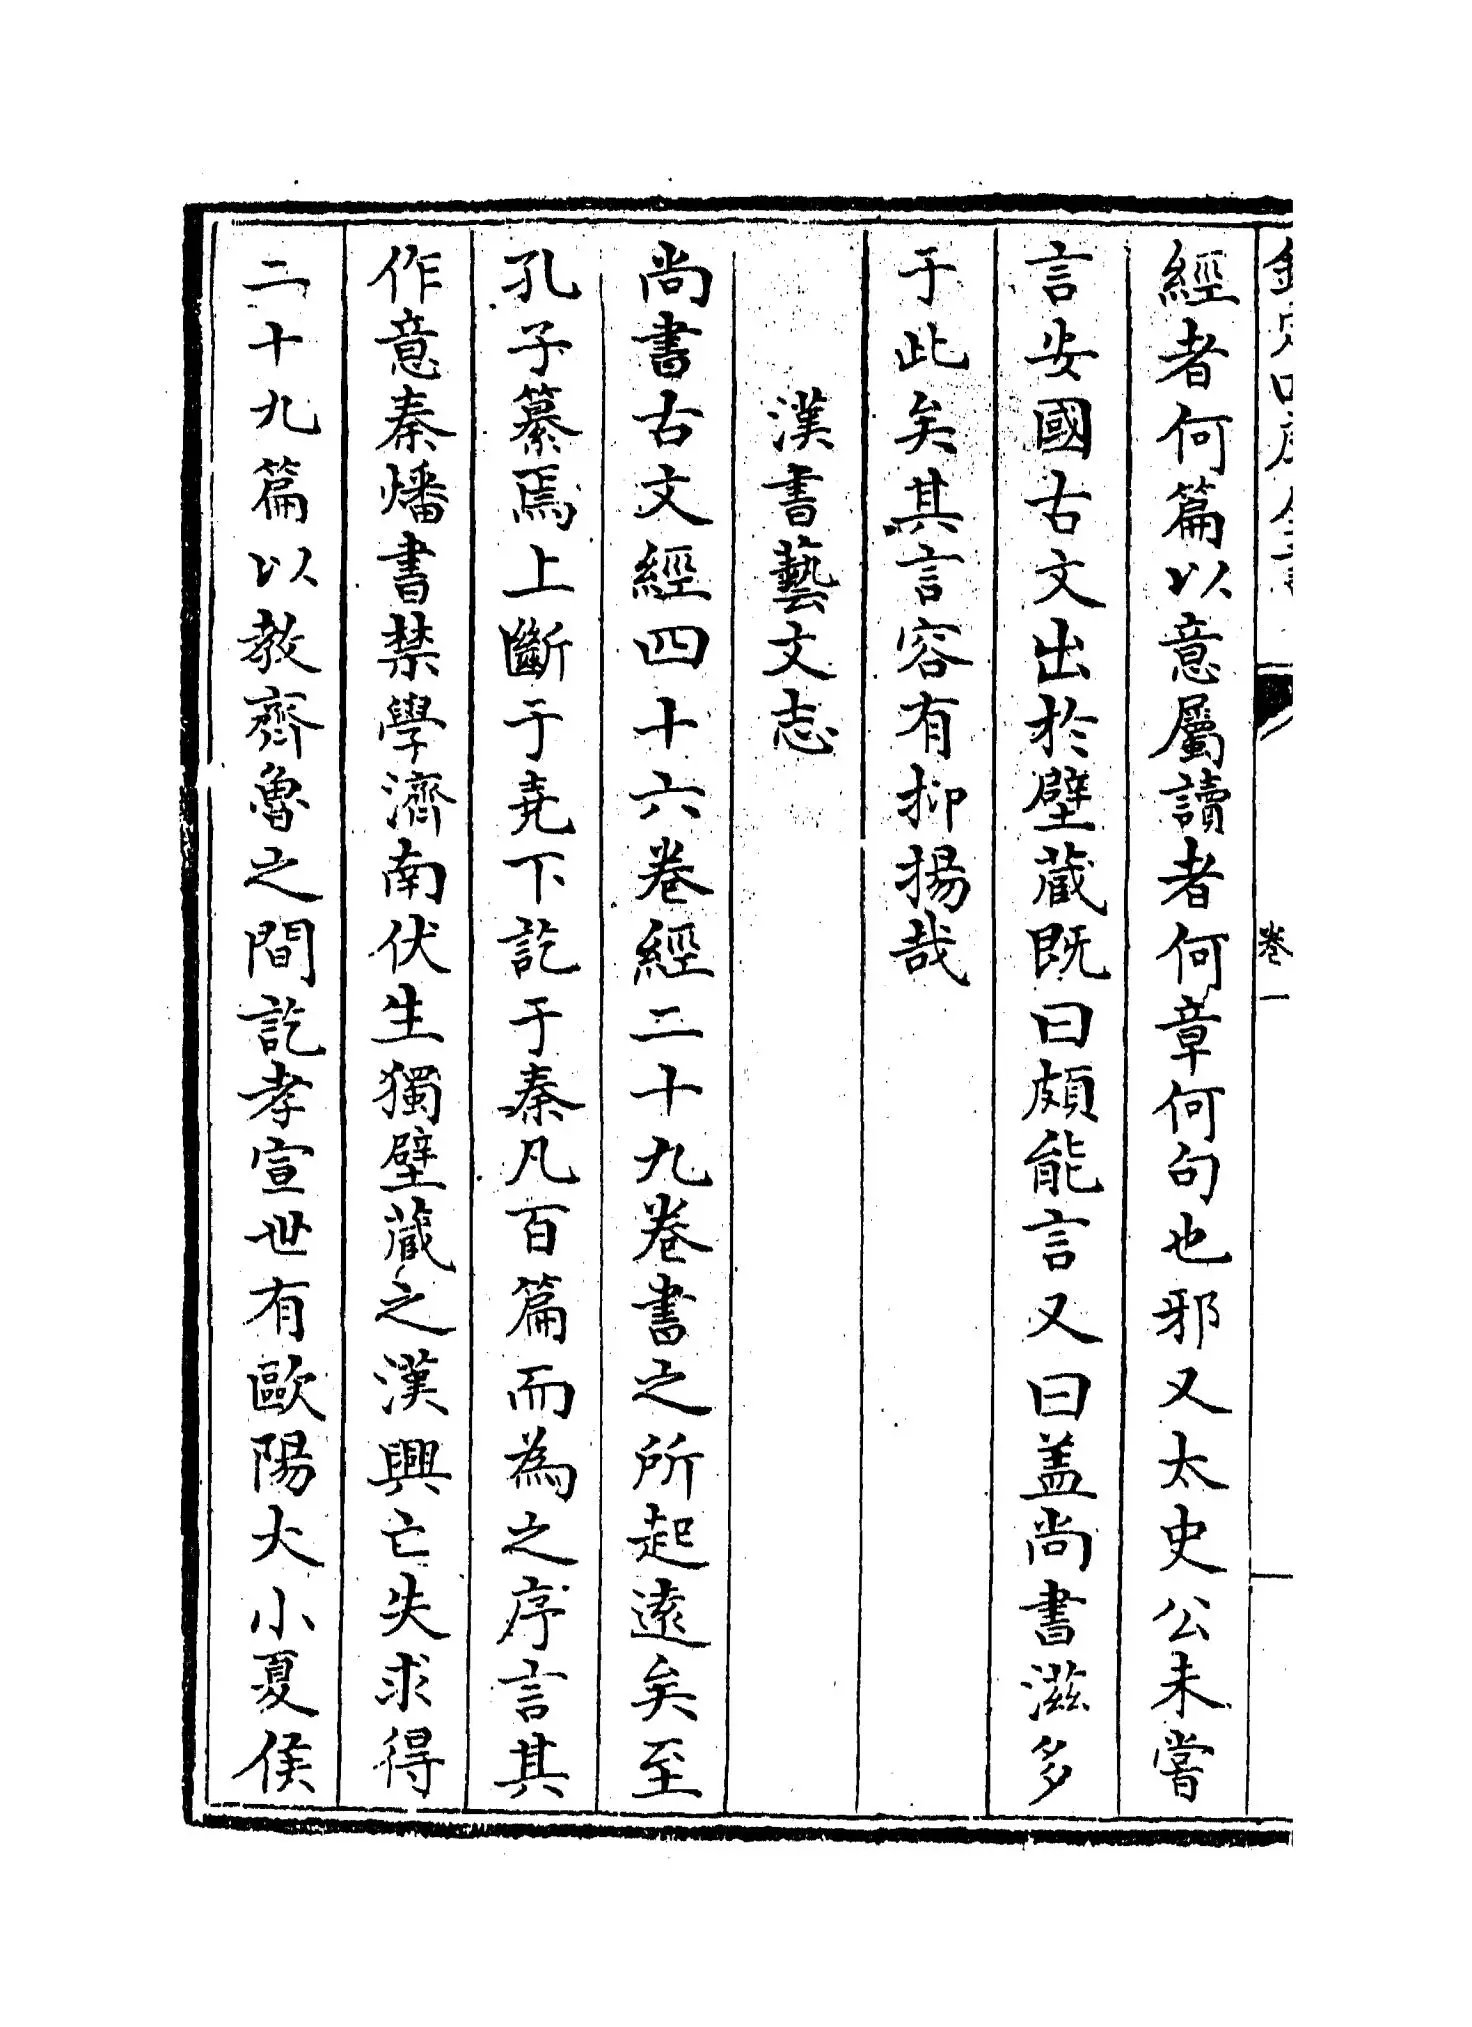 卷一
經者何篇以意屬讀者何章何句也邪又太史公未嘗
言安國古文出於壁藏既曰頗能言又曰盖尚書滋多
于此矣其言容有抑揚哉
漢書藝文志
尚書古文經四十六卷經二十九卷書之所起遠矣至
孔子纂焉上斷于堯下訖于秦凡百篇而為之序言其
作意秦燔書禁學濟南伏生獨壁藏之漢興亡失求得
二十九篇以教齊魯之間訖孝宣世有歐陽大小夏侯